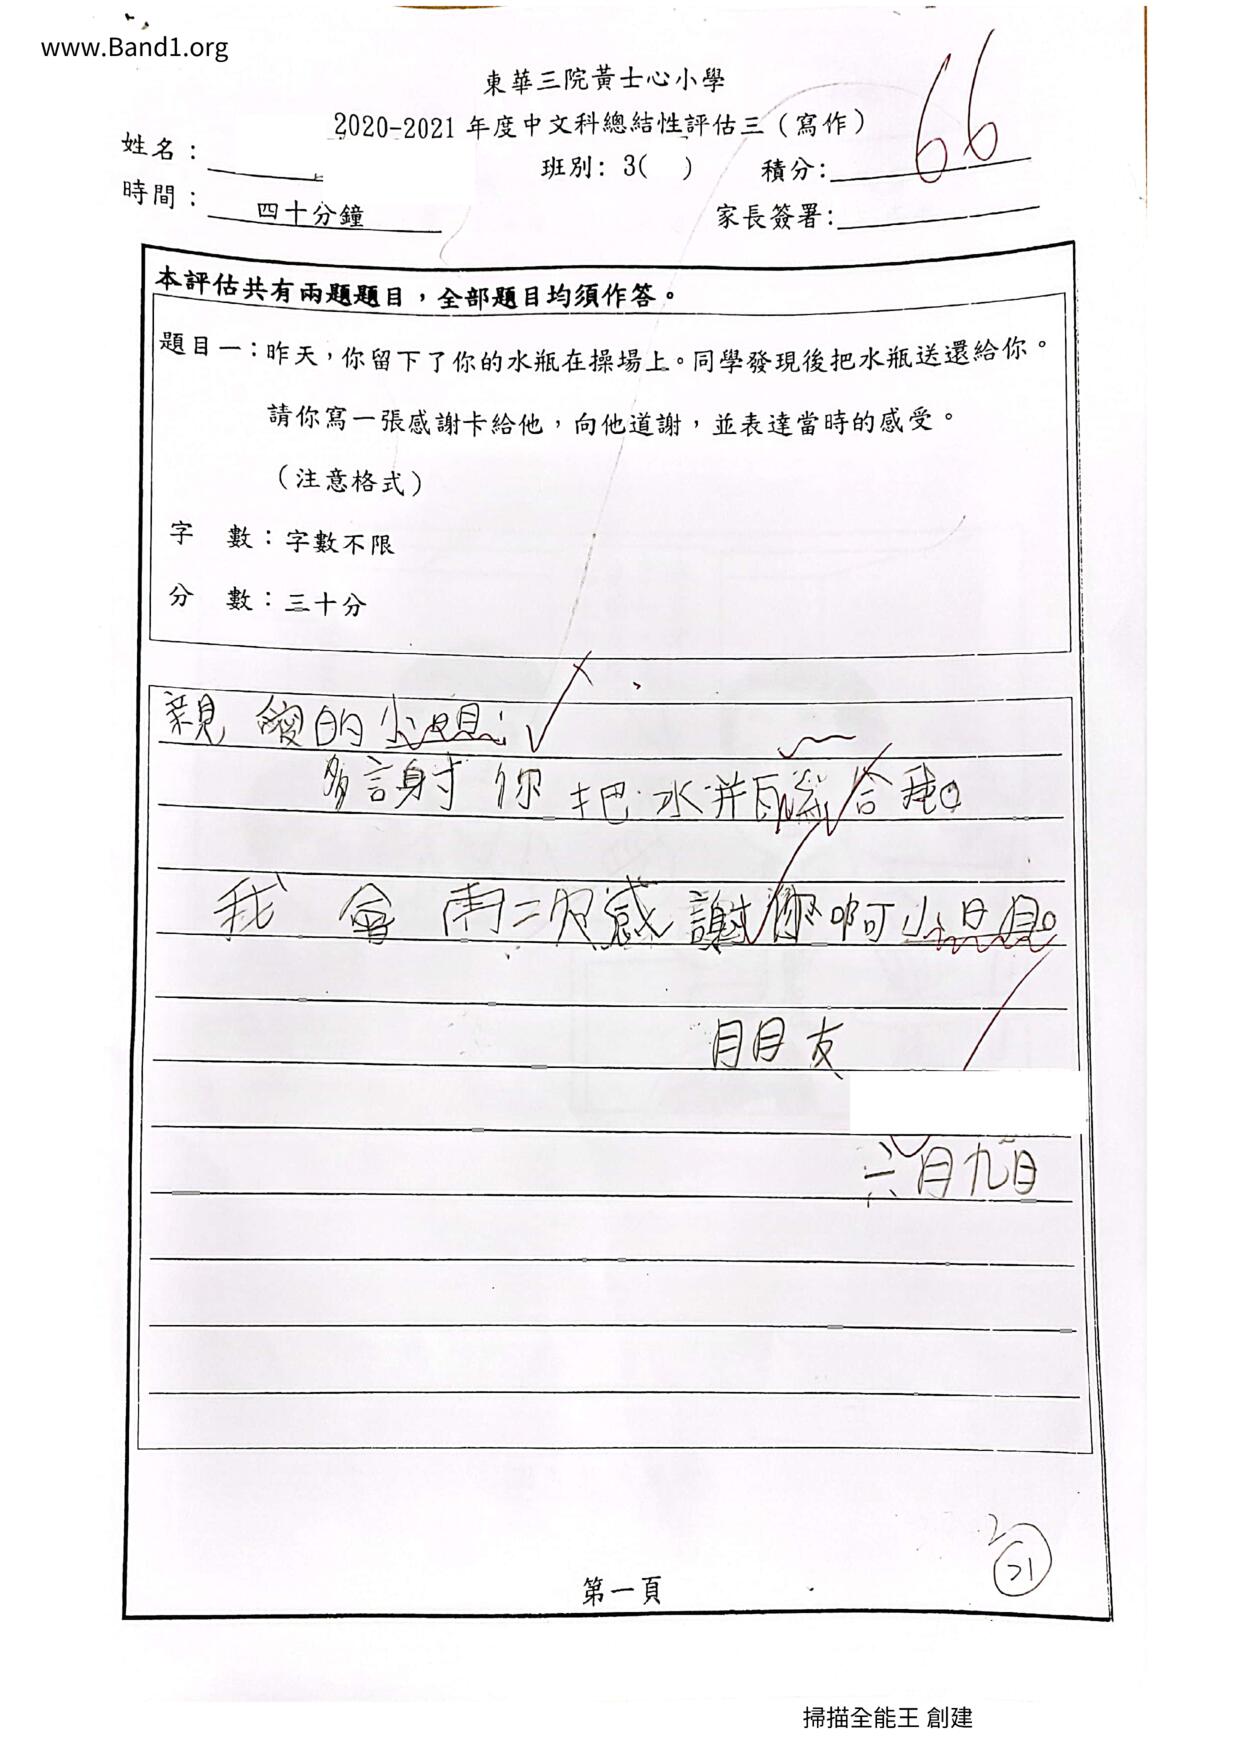 www.Band1.org
東華三院黃士心小學
2020-2021年度中文科總結性評估三（寫作）
66
姓名：
班別: 3( ) 積分:
時間： 四十分鐘
家長簽署:
本評估共有兩題題目，全部題目均須作答。
題目一：昨天，你留下了你的水瓶在操場上。同學發現後把水瓶送還給你。
請你寫一張感謝卡給他，向他道謝，並表達當時的感受。
（注意格式）
字 數：字數不限
分 數：三十分
親愛的小明：
多謝你把水瓶給我。
我會再次感謝你啊小明。
朋友
六月九日
2
21
第一頁
掃描全能王 創建